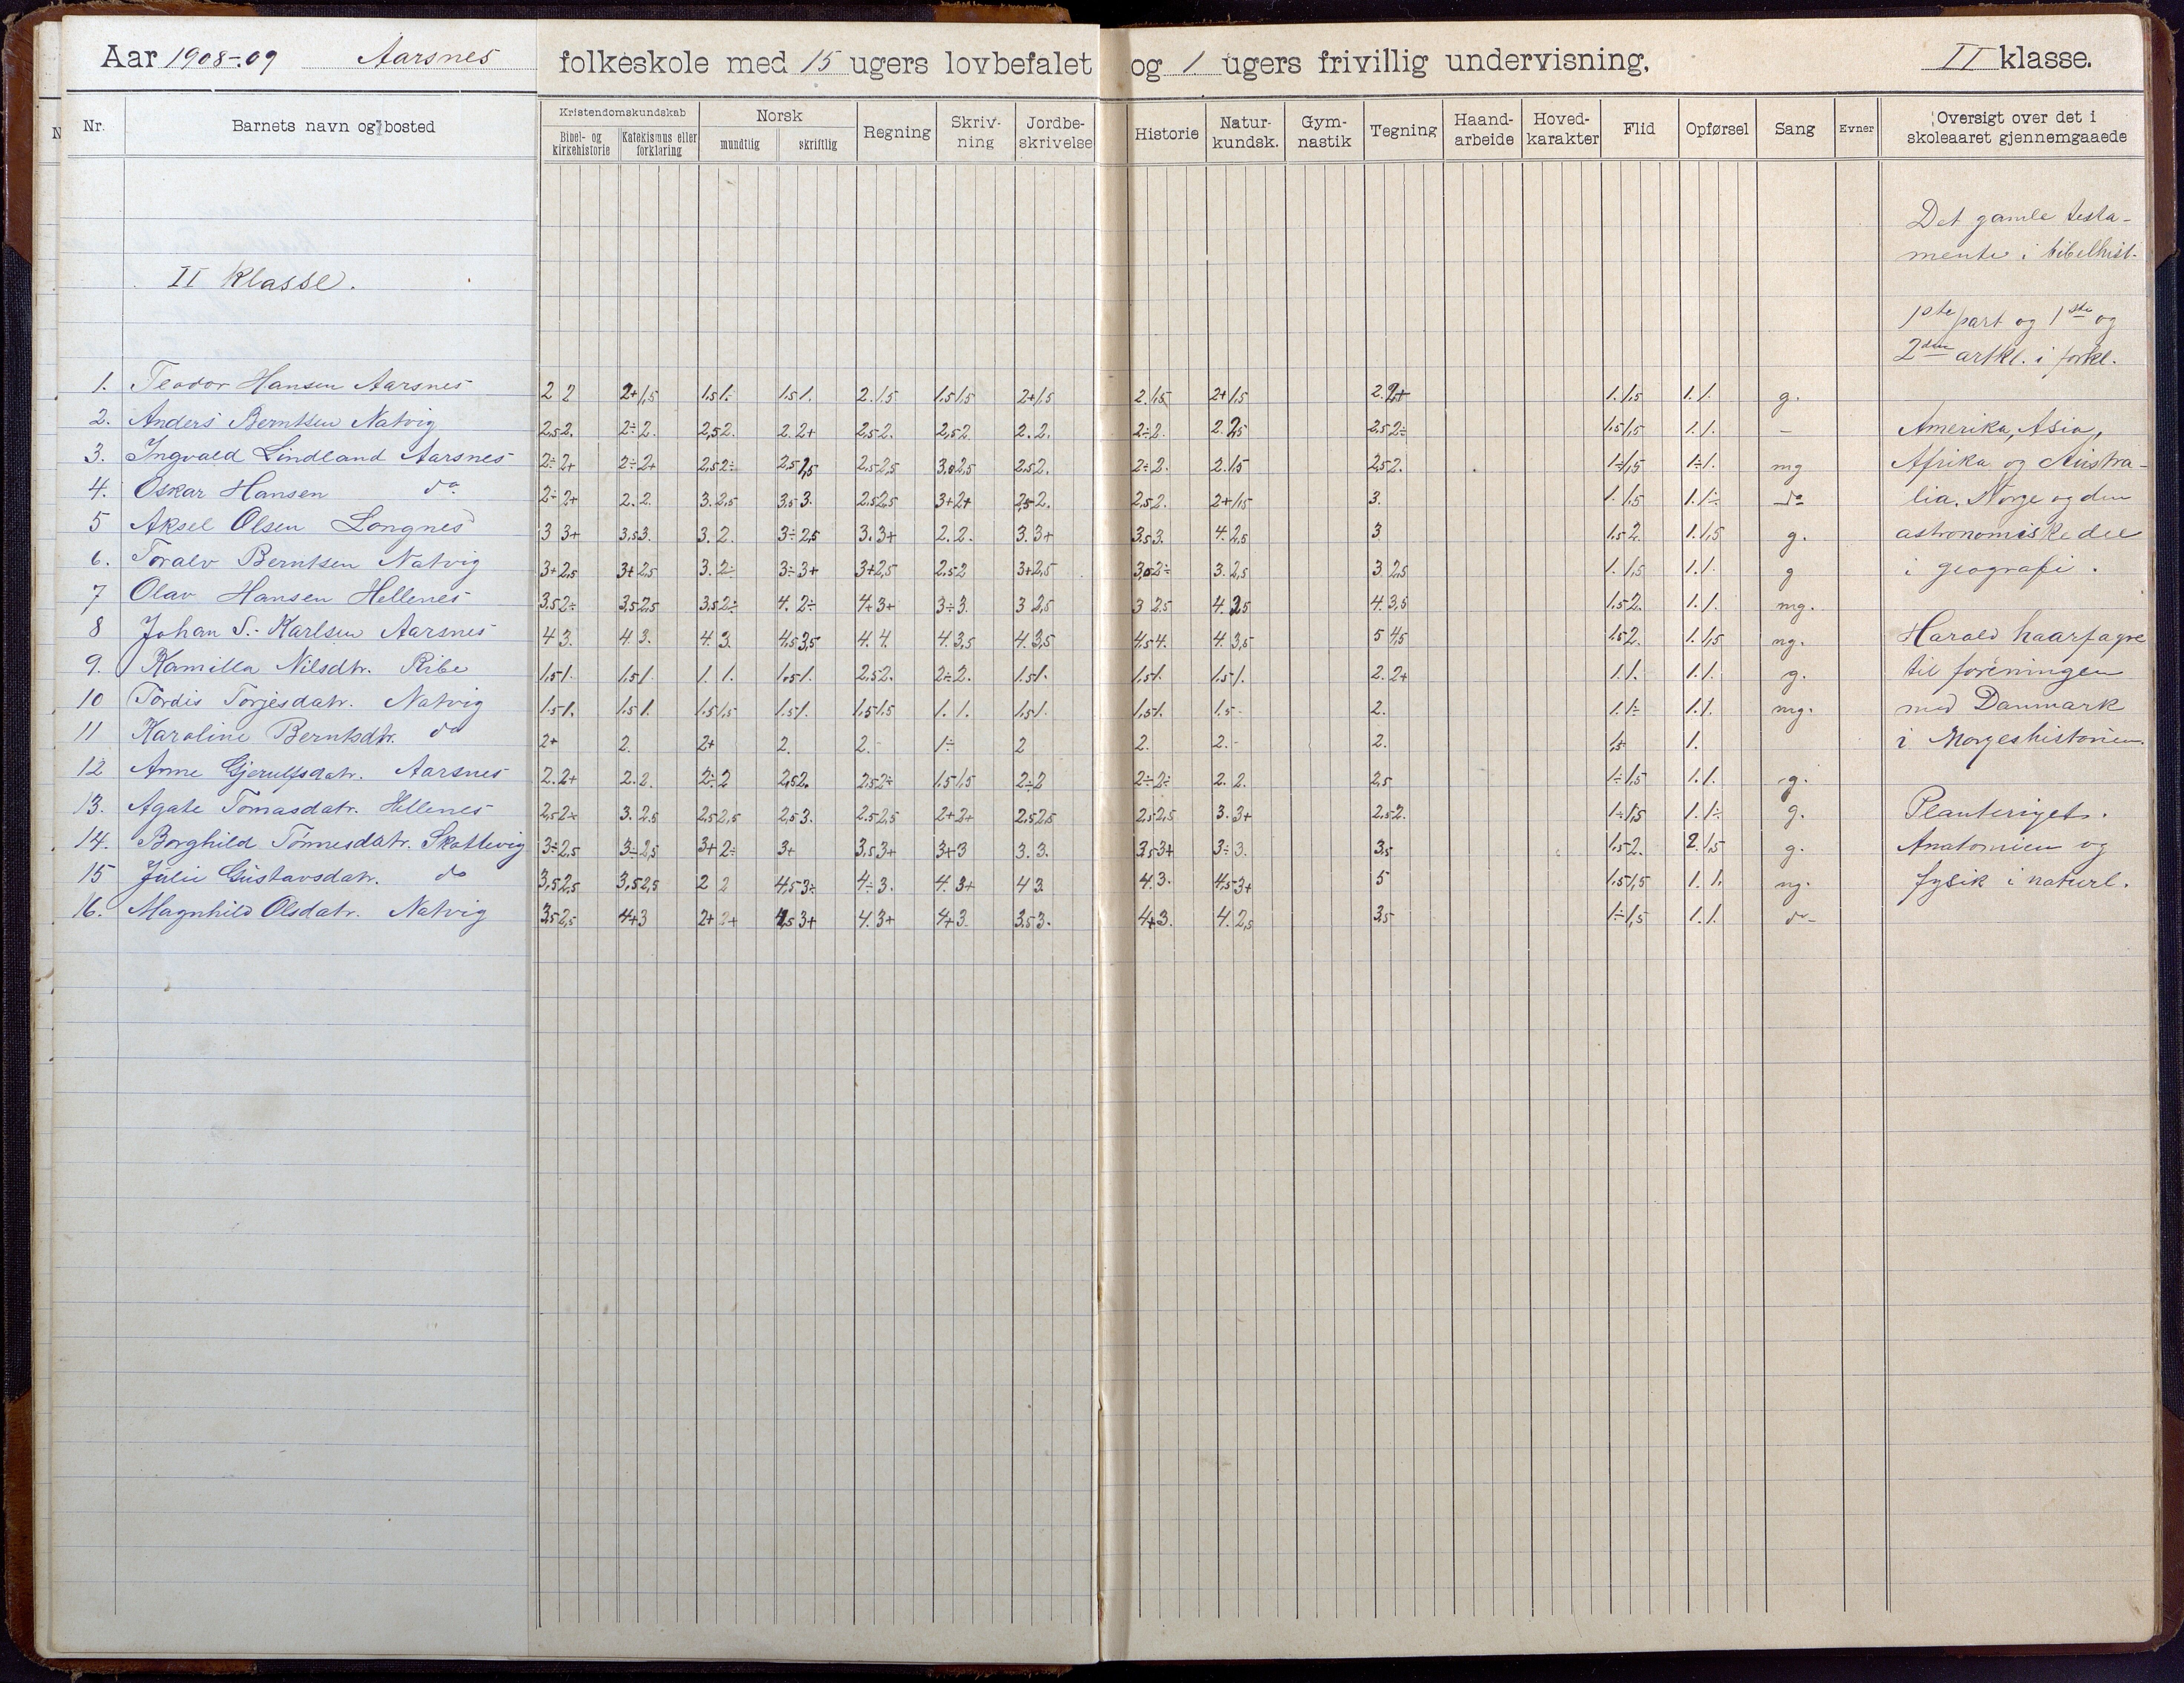 Aar 1908-09 Aarsnes folkeskole med 15 ugers lovbefalet og 1 ugers frivillig undervisning, II klasse.
Nr. Barnets navn og bosted Kristendomskundskab Bibel- og kirkehistorie Katekismus eller forklaring Norsk mundtlig skriftlig Regning Skriv-ning Jordbe-skrivelse Historie Natur-kundsk. Gym-nastik Tegning Haand-arbeide Hoved-karakter Flid Opførsel Sang Evner Oversigt over det i skoleaaret gjennemgaaede
II Klasse.
1. Teodor Hansen Aarsnes 2 2 2+ 1,5 1,5 1÷ 1,5 1. 2. 1,5 1,5 1,5 2+ 1,5 2. 1,5 2+ 1,5 2. 2+ 1. 1,5 1. 1. g.
2. Anders Berntsen Natvig 2,5 2. 2÷ 2. 2,5 2. 2. 2+ 2,5 2. 2,5 2 2. 2. 2÷ 2. 2. 2,5 2,5 2÷ 1,5 1,5 1. 1. -
3. Ingvald Lindland Aarsnes 2÷ 2+ 2÷ 2+ 2,5 2÷ 2,5 2,5 2,5 3,0 2,5 2,5 2. 2÷ 2. 2. 1,5 2,5 2. 1÷ 1,5 1÷ 1. mg
4. Oskar Hansen do 2÷ 2+ 2. 2. 3. 2,5 3,5 3. 2,5 2,5 3+ 2+ 2,5 2. 2,5 2. 2+ 1,5 3. 1. 1,5 1. 1÷ do
5 Aksel Olsen Longnes 3 3+ 3,5 3. 3. 2. 3÷ 2,5 3. 3+ 2. 2. 3. 3+ 3,5 3. 4. 2,5 3 1,5 2. 1. 1,5 g.
6. Toralv Berntsen Natvig 3+ 2,5 3+ 2,5 3. 2÷ 3÷ 3+ 3+ 2,5 2,5 2 3+ 2,5 3,0 2÷ 3. 2,5 3 2,5 1. 1,5 1. 1. g
7 Olav Hansen Hellenes 3,5 2÷ 3,5 2,5 3,5 2÷ 4. 2÷ 4+ 3+ 3÷ 3. 3 2,5 3 2,5 4. 2,5 4. 3,5 1,5 2. 1. 1. mg.
8 Johan S. Karlsen Aarsnes 4 3. 4 3. 4. 3. 4,5 3,5 4. 4. 4. 3,5 4. 3,5 4,5 4. 4. 3,5 5 4,5 1,5 2. 1. 1,5 ng.
9. Kamilla Nilsdtr. Ribe 1,5 1. 1,5 1. 1. 1. 1,5 1. 2,5 2. 2÷ 2. 1,5 1. 1,5 1. 1,5 1. 2. 2+ 1. 1. 1. 1. g.
10 Tordis Torjesdatr. Natvig 1,5 1. 1,5 1. 1,5 1,5 1,5 1. 1,5 1,5 1. 1. 1,5 1. 1,5 1. 1,5 - 2. 1. 1÷ 1. 1. mg.
11 Karoline Berntsdtr. do 2+ 2. 2+ 2. 2. - 1÷ 2 2. 2. - 2. 1. 
12 Anne Gjerulfsdatr. Aarsnes 2. 2+ 2. 2. 2÷ 2 2,5 2. 2,5 2÷ 1,5 1,5 2÷ 2 2÷ 2÷ 2. 2. 2,5 1÷ 1,5 1. 1. g.
13. Agate Tomasdatr. Hellenes 2,5 2÷ 3. 2,5 2,5 2,5 2,5 3. 2,5 2,5 2+ 2+ 2,5 2,5 2,5 2,5 3. 3+ 2,5 2. 1÷ 1,5 1. 1÷ g.
14. Borghild Tønnesdatr. Skottevig 3÷ 2,5 3÷ 2,5 3+ 2÷ 3+ 3,5 3+ 3+ 3 3. 3. 3,5 3+ 3÷ 3. 3,5 1,5 2. 2. 1,5 g.
15 Julie Gustavsdatr. do 3,5 2,5 3,5 2,5 2 2 4,5 3÷ 4÷ 3. 4. 3+ 4 3. 4. 3. 4,5 3+ 5 1,5 1,5 1. 1. ng.
16. Magnhild Olsdatr. Natvig 3,5 2,5 4+ 3 2+ 2+ 3+ 4. 3+ 4+ 3. 3,5 3. 4+ 3. 4. 2,5 3,5 1÷ 1,5 1. 1. do
Det gamle testa-
mente i bibelhist.
1ste part og 1ste og
2den artkl. i forkl.
Amerika, Asia,
Afrika og Austra-
lia. Norge og den
astronomiske del
i geografi.
Harald haarfagre
til foreningen
med Danmark
i Norgeshistorien.
Planteriget.
Anatomien og
fysik i naturl.